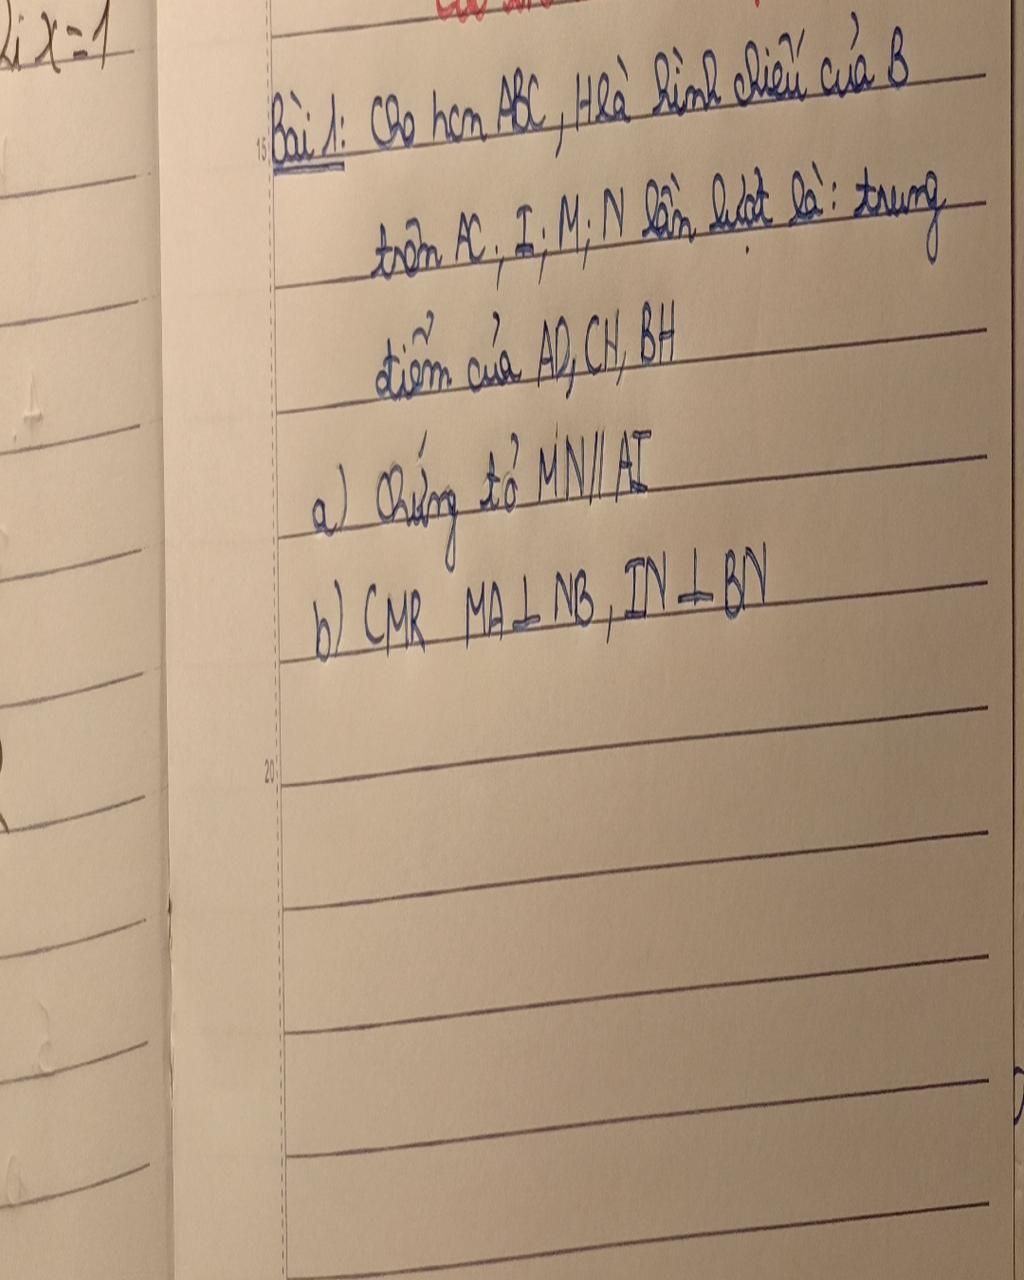 x=1
Bài 1: Cho hcn ABC, H là hình chiếu của B
trên AC, I; M; N lần lượt là: trung
điểm của AD, CH, BH
a) Chứng tỏ MN // AI
b) CMR MA ⊥ NB, IN ⊥ BN
15
20